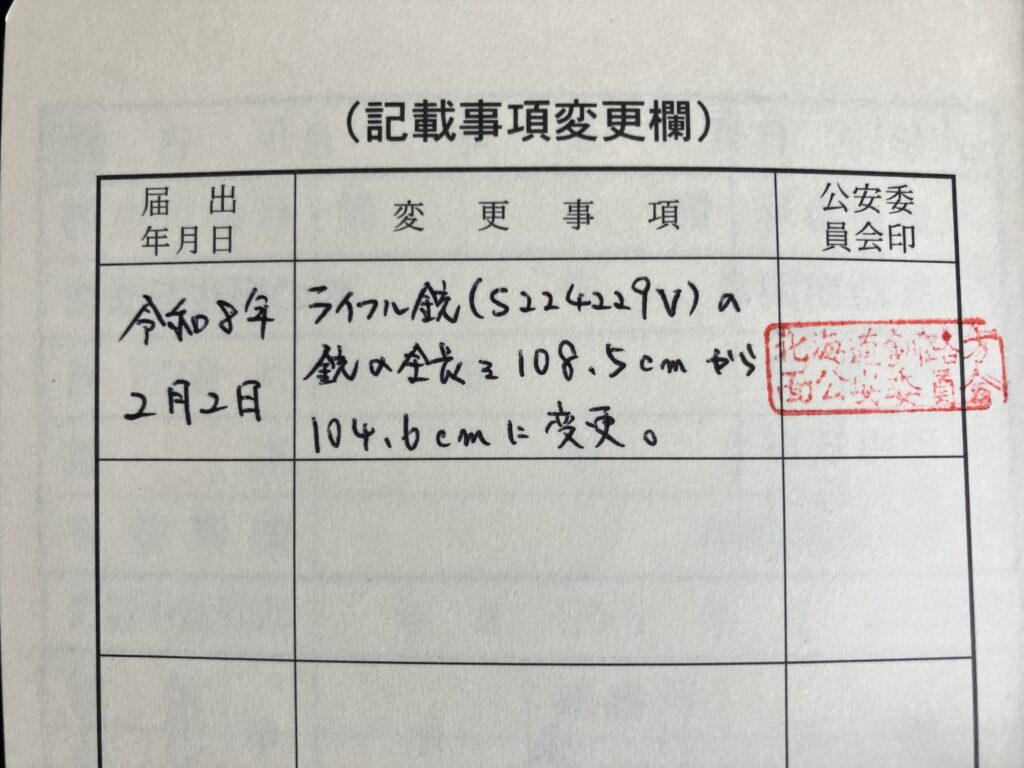 (記載事項変更欄)
届出
年月日
変更事項
公安委
員会印
令和8年
2月2日
ライフル銃(S224229V)の
銃の全長を108.5cmから
104.6cmに変更。
北海道釧路方
面公安委員会